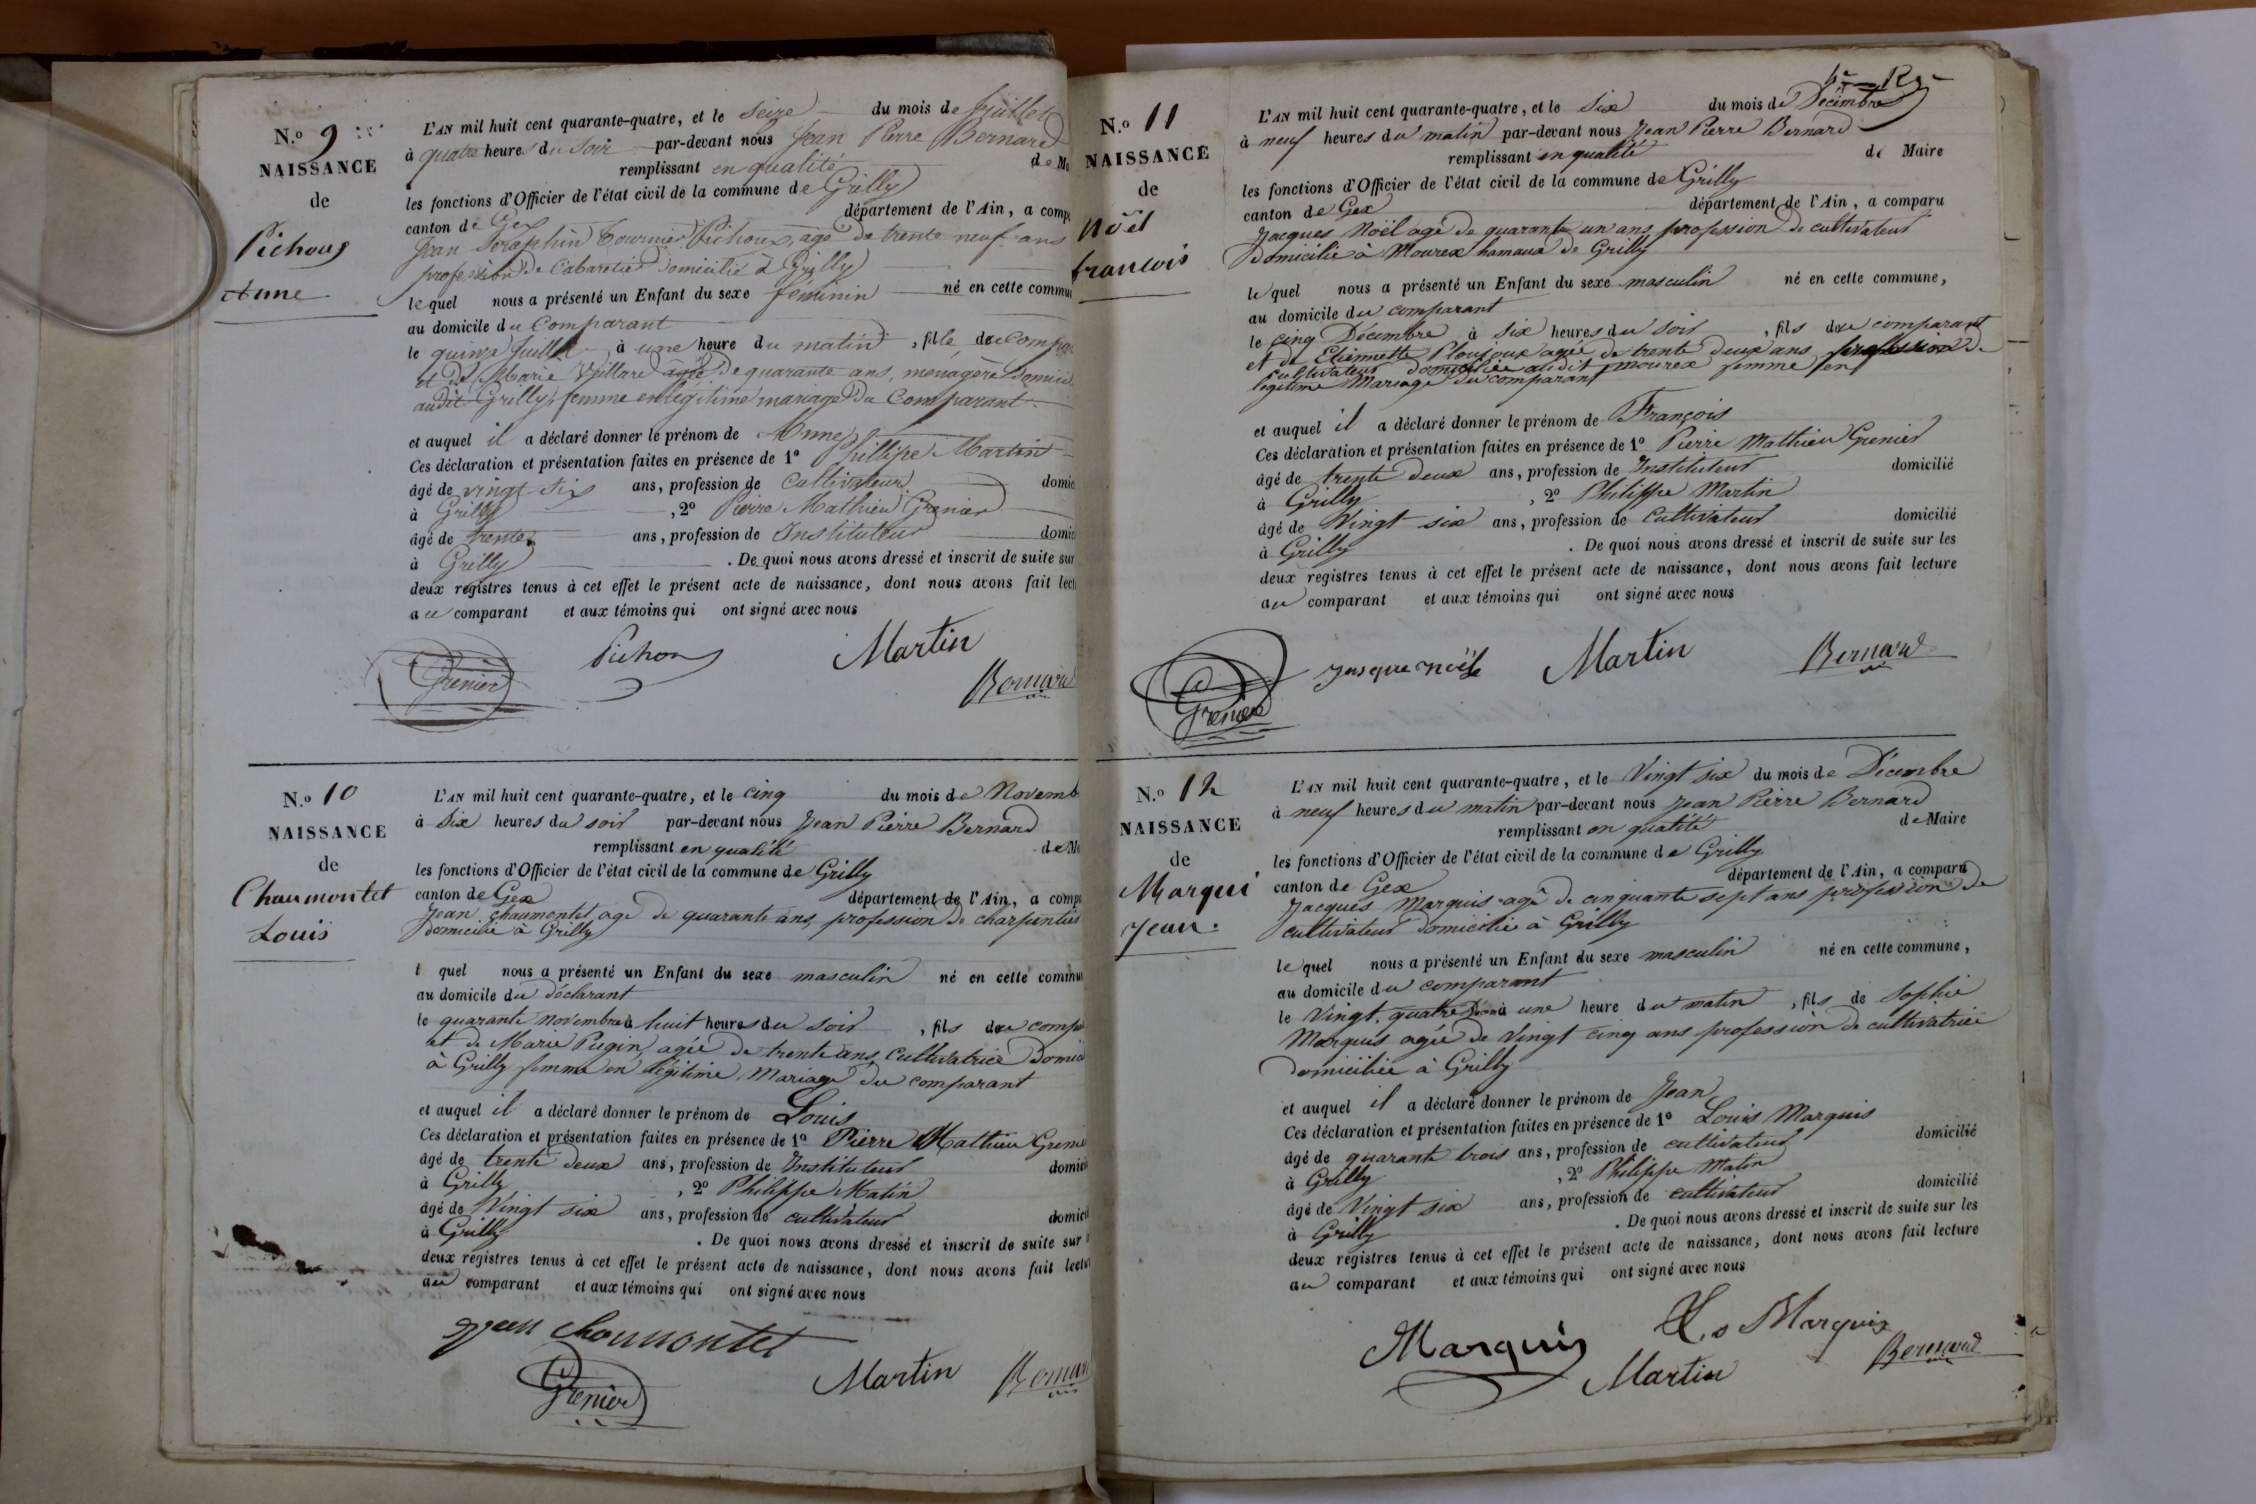 N.o 9
NAISSANCE
de
Pichoux
Anne
L'AN mil huit cent quarante-quatre, et le seize du mois de Juillet
à quatre heures du soir par-devant nous Jean Pierre Bernard
remplissant en qualité de Ma
les fonctions d'Officier de l'état civil de la commune de Grilly
canton de Gex département de l'Ain, a compa
Jean Séraphin Tournier Pichoux, agé de trente neuf ans
profession de Cabaretier domicilié à Grilly
lequel nous a présenté un Enfant du sexe féminin né en cette commu
au domicile du Comparant
le quinze Juillet à une heure du matin, fille du Compar
et de Marie Vuillard agée de quarante ans, menagère Domici
audit Grilly, femme en légitime mariage du Comparant.
et auquel il a déclaré donner le prénom de Anne
Ces déclaration et présentation faites en présence de 1o Phillipe Martin
âgé de vingt six ans, profession de Cultivateur domic
à Grilly , 2o Pierre Mathieu Grenier
âgé de trente ans, profession de Instituteur domic
à Grilly . De quoi nous avons dressé et inscrit de suite sur
deux registres tenus à cet effet le présent acte de naissance, dont nous avons fait lect
au comparant et aux témoins qui ont signé avec nous
Grenier Pichoux Martin Bernard
N.o 10
NAISSANCE
de
Chaumontet
Louis
L'AN mil huit cent quarante-quatre, et le cinq du mois de Novemb
à six heures du soir par-devant nous Jean Pierre Bernard
remplissant en qualité de Ma
les fonctions d'Officier de l'état civil de la commune de Grilly
canton de Gex département de l'Ain, a compa
Jean Chaumontet, agé de quarante ans, profession de charpentier
domicilié à Grilly
l quel nous a présenté un Enfant du sexe masculin né en cette commu
au domicile du déclarant
le quarante Novembre à huit heures du soir , fils du compa
et de Marie Pugin, agée de trente ans, cultivatrice domici
à Grilly femme en légitime Mariage du comparant
et auquel il a déclaré donner le prénom de Louis
Ces déclaration et présentation faites en présence de 1o Pierre Mathieu Greni
âgé de trente deux ans, profession de Instituteur domici
à Grilly , 2o Philippe Matin
âgé de Vingt six ans, profession de cultivateur domici
à Grilly . De quoi nous avons dressé et inscrit de suite sur
deux registres tenus à cet effet le présent acte de naissance, dont nous avons fait lectu
au comparant et aux témoins qui ont signé avec nous
Jean Choumontet
Grenier Martin Bernar
N.o 11
NAISSANCE
de
Noël
francois
L'AN mil huit cent quarante-quatre, et le Six du mois de Décembre
à neuf heures du matin par-devant nous Jean Pierre Bernard
remplissant en qualité de Maire
les fonctions d'Officier de l'état civil de la commune de Grilly
canton de Gex département de l'Ain, a comparu
Jacques Noël agé de quarante un ans, profession de cultivateur
domicilié à Mourex hamaux de Grilly
lequel nous a présenté un Enfant du sexe masculin né en cette commune,
au domicile du comparant
le cinq Décembre à six heures du soir , fils du comparant
et de Etiennette Ploujoux agée de trente deux ans profession de
cultivateur domiciliée audit Mourex femme en
légitime Mariage du comparant
et auquel il a déclaré donner le prénom de François
Ces déclaration et présentation faites en présence de 1o Pierre Mathieu Grenier
âgé de trente deux ans, profession de Instituteur domicilié
à Grilly , 2o Philippe Martin
âgé de Vingt six ans, profession de Cultivateur domicilié
à Grilly . De quoi nous avons dressé et inscrit de suite sur les
deux registres tenus à cet effet le présent acte de naissance, dont nous avons fait lecture
au comparant et aux témoins qui ont signé avec nous
Grenier Martin Bernard
N.o 12
NAISSANCE
de
Marqui
Jean.
L'AN mil huit cent quarante-quatre, et le Vingt six du mois de Décembre
à neuf heures du matin par-devant nous Jean Pierre Bernard
remplissant en qualité de Maire
les fonctions d'Officier de l'état civil de la commune de Grilly
canton de Gex département de l'Ain, a comparu
Jacques Marquis agé de cinquante sept ans profession de
cultivateur domicilié à Grilly
lequel nous a présenté un Enfant du sexe masculin né en cette commune,
au domicile du comparant
le Vingt quatre à une heure du matin , fils de Sophie
Marquis agée de Vingt cinq ans profession de cultivatrice
domiciliée à Grilly
et auquel il a déclaré donner le prénom de Jean
Ces déclaration et présentation faites en présence de 1o Louis Marquis
âgé de quarante trois ans, profession de cultivateur domicilié
à Grilly , 2o Philippe Matin
âgé de Vingt six ans, profession de cultivateur domicilié
à Grilly . De quoi nous avons dressé et inscrit de suite sur les
deux registres tenus à cet effet le présent acte de naissance, dont nous avons fait lecture
au comparant et aux témoins qui ont signé avec nous
Marquis Ls Marquis
Martin Bernard